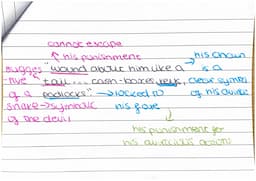 cannot escape
↑ his punishment
suggests "wound about him like a → his chain
-ive tail... cash-boxes, keys, clear symbol
of a padlocks" → locked to of his avarice
snake → symbolic his fate
of the devil
his punishment for
his avaricious actions